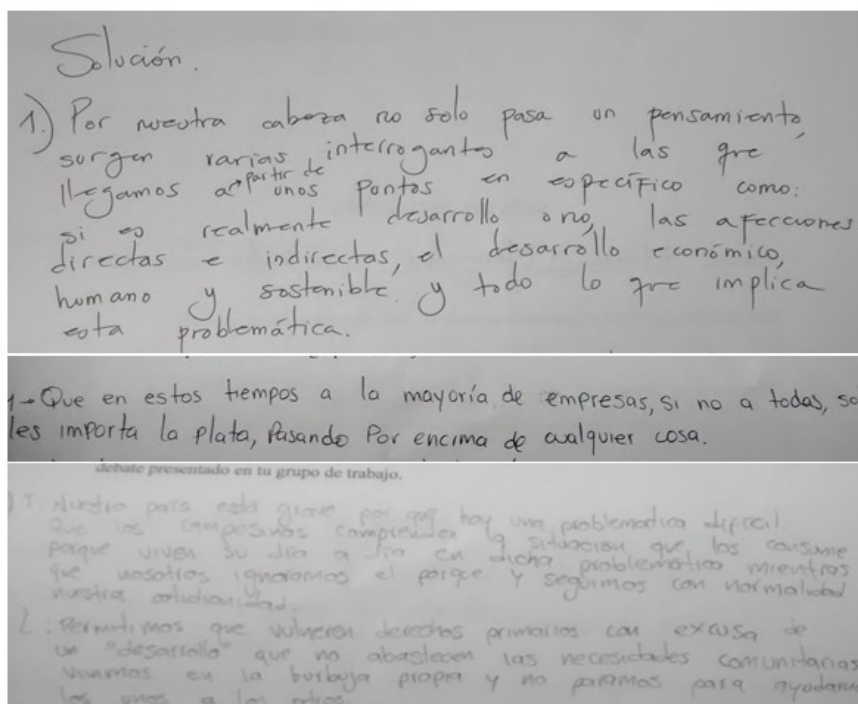 Solución.
1.) Por nuestra cabeza no solo pasa un pensamiento,
surgen varias interrogantes a las que
llegamos a partir de unos puntos en específico como:
si es realmente desarrollo o no, las afecciones
directas e indirectas, el desarrollo económico,
humano y sostenible y todo lo que implica
esta problemática.
1- Que en estos tiempos a la mayoría de empresas, si no a todas, so
les importa la plata, Pasando Por encima de cualquier cosa.
debate presentado en tu grupo de trabajo.
1. Nuestro país está grave por que hay una problematica dificil
Que los campesinos comprenden la situación que los consume
porque viven su dia a dia en dicha problemática mientras
que nosotros ignoramos el porque y seguimos con normalidad
nuestra cotidianidad.
2. Permitimos que vulneren derechos primarios con excusa de
un "desarrollo" que no abastecen las necesidades comunitarias
vivimos en la burbuja propia y no paramos para ayudarn
los unos a los otros.